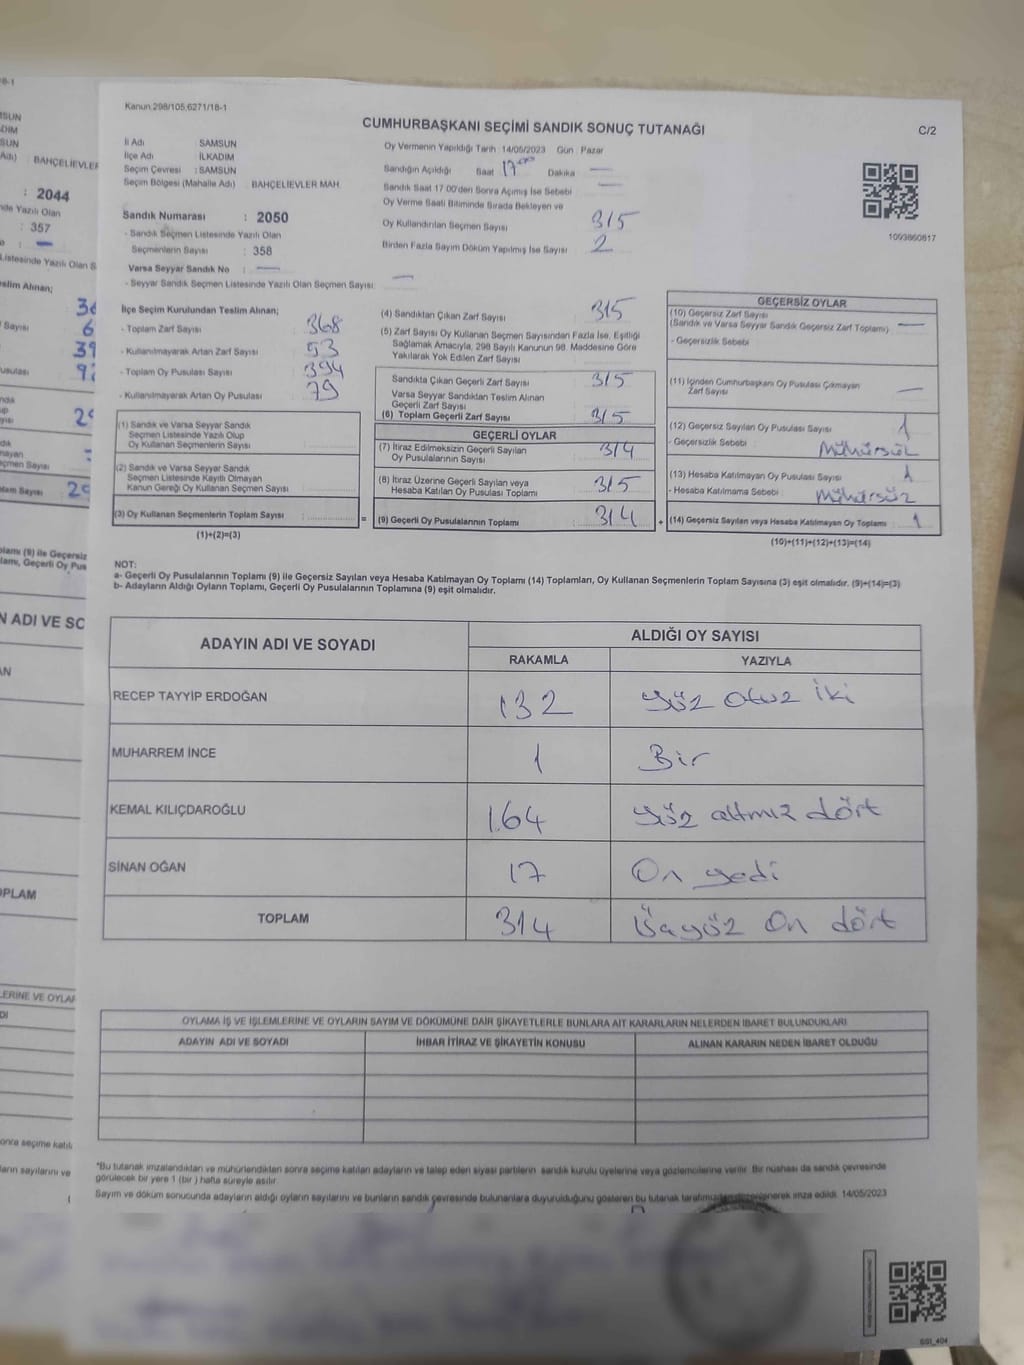 Kanun 298/105,6271/18-1
CUMHURBAŞKANI SEÇİMİ SANDIK SONUÇ TUTANAĞI
C/2
İl Adı SAMSUN
İlçe Adı İLKADIM
Seçim Çevresi : SAMSUN
Seçim Bölgesi (Mahalle Adı) : BAHÇELİEVLER MAH.
Oy Vermenin Yapıldığı Tarih : 14/05/2023 Gün : Pazar
Sandığın Açıldığı Saat 17 Dakika —
Sandık Saat 17:00'den Sonra Açımış İse Sebebi —
Oy Verme Saati Bitiminde Sırada Bekleyen ve
Oy Kullandırılan Seçmen Sayısı 315
Birden Fazla Sayım Döküm Yapılmış İse Sayısı 2
1093860817
Sandık Numarası : 2050
- Sandık Seçmen Listesinde Yazılı Olan
Seçmenlerin Sayısı : 358
Varsa Seyyar Sandık No : —
- Seyyar Sandık Seçmen Listesinde Yazılı Olan Seçmen Sayısı: —
İlçe Seçim Kurulundan Teslim Alınan;
- Toplam Zarf Sayısı 368
- Kullanılmayarak Artan Zarf Sayısı 53
- Toplam Oy Pusulası Sayısı 394
- Kullanılmayarak Artan Oy Pusulası 79
(1) Sandık ve Varsa Seyyar Sandık
Seçmen Listesinde Yazılı Olup
Oy Kullanan Seçmenlerin Sayısı
(2) Sandık ve Varsa Seyyar Sandık
Seçmen Listesinde Kayıtlı Olmayan
Kanun Gereği Oy Kullanan Seçmen Sayısı
(3) Oy Kullanan Seçmenlerin Toplam Sayısı :
(1)+(2)=(3)
(4) Sandıktan Çıkan Zarf Sayısı 315
(5) Zarf Sayısı Oy Kullanan Seçmen Sayısından Fazla İse, Eşitliği
Sağlamak Amacıyla, 298 Sayılı Kanunun 98. Maddesine Göre
Yakılarak Yok Edilen Zarf Sayısı
Sandıkta Çıkan Geçerli Zarf Sayısı 315
Varsa Seyyar Sandıktan Teslim Alınan
Geçerli Zarf Sayısı
(6) Toplam Geçerli Zarf Sayısı 315
GEÇERLİ OYLAR
(7) İtiraz Edilmeksizin Geçerli Sayılan
Oy Pusulalarının Sayısı 314
(8) İtiraz Üzerine Geçerli Sayılan veya
Hesaba Katılan Oy Pusulası Toplamı 315
(9) Geçerli Oy Pusulalarının Toplamı 314
GEÇERSİZ OYLAR
(10) Geçersiz Zarf Sayısı
(Sandık ve Varsa Seyyar Sandık Geçersiz Zarf Toplamı) —
- Geçersizlik Sebebi
(11) İçinden Cumhurbaşkanı Oy Pusulası Çıkmayan
Zarf Sayısı —
(12) Geçersiz Sayılan Oy Pusulası Sayısı 1
- Geçersizlik Sebebi : Mühürsüz
(13) Hesaba Katılmayan Oy Pusulası Sayısı 1
- Hesaba Katılmama Sebebi : Mühürsüz
(14) Geçersiz Sayılan veya Hesaba Katılmayan Oy Toplamı 1
(10)+(11)+(12)+(13)=(14)
NOT:
a- Geçerli Oy Pusulalarının Toplamı (9) ile Geçersiz Sayılan veya Hesaba Katılmayan Oy Toplamı (14) Toplamları, Oy Kullanan Seçmenlerin Toplam Sayısına (3) eşit olmalıdır. (9)+(14)=(3)
b- Adayların Aldığı Oyların Toplamı, Geçerli Oy Pusulalarının Toplamına (9) eşit olmalıdır.
ADAYIN ADI VE SOYADI
ALDIĞI OY SAYISI
RAKAMLA YAZIYLA
RECEP TAYYİP ERDOĞAN 132 Yüz otuz iki
MUHARREM İNCE 1 Bir
KEMAL KILIÇDAROĞLU 164 Yüz altmız dört
SİNAN OĞAN 17 On yedi
TOPLAM 314 Üçyüz On dört
OYLAMA İŞ VE İŞLEMLERİNE VE OYLARIN SAYIM VE DÖKÜMÜNE DAİR ŞİKAYETLERLE BUNLARA AİT KARARLARIN NELERDEN İBARET BULUNDUKLARI
ADAYIN ADI VE SOYADI İHBAR İTİRAZ VE ŞİKAYETİN KONUSU ALINAN KARARIN NEDEN İBARET OLDUĞU
*Bu tutanak imzalandıktan ve mühürlendikten sonra seçime katılan adayların ve talep eden siyasi partilerin sandık kurulu üyelerine veya gözlemcilerine verilir. Bir nüshası da sandık çevresinde
görülecek bir yere 1 (bir ) hafta süreyle asılır.
Sayım ve döküm sonucunda adayların aldığı oyların sayılarını ve bunların sandık çevresinde bulunanlara duyurulduğunu gösteren bu tutanak imza edildi. 14/05/2023
SS1_404
BAHÇELİEVLER
: 2044
: 357